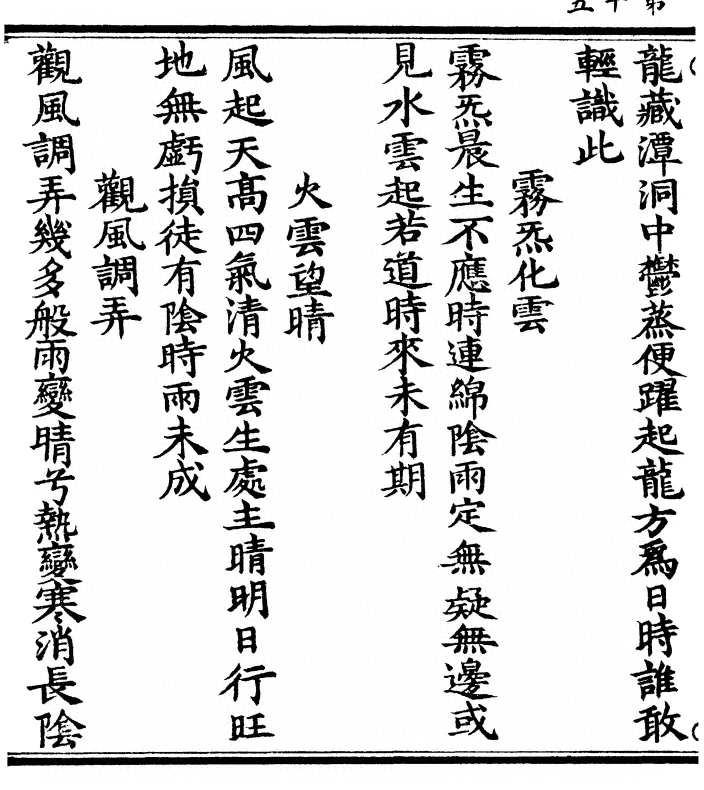 第十五
龍藏潭洞中鬱蒸便躍起龍方爲日時誰敢
輕識此
霧炁化雲
霧炁晨生不應時連綿陰雨定無疑無邊或
見水雲起若道時來未有期
火雲望晴
風起天高四氣清火雲生處主晴明日行旺
地無虧損徒有陰時雨未成
觀風調弄
觀風調弄幾多般雨變晴兮熱變寒消長陰